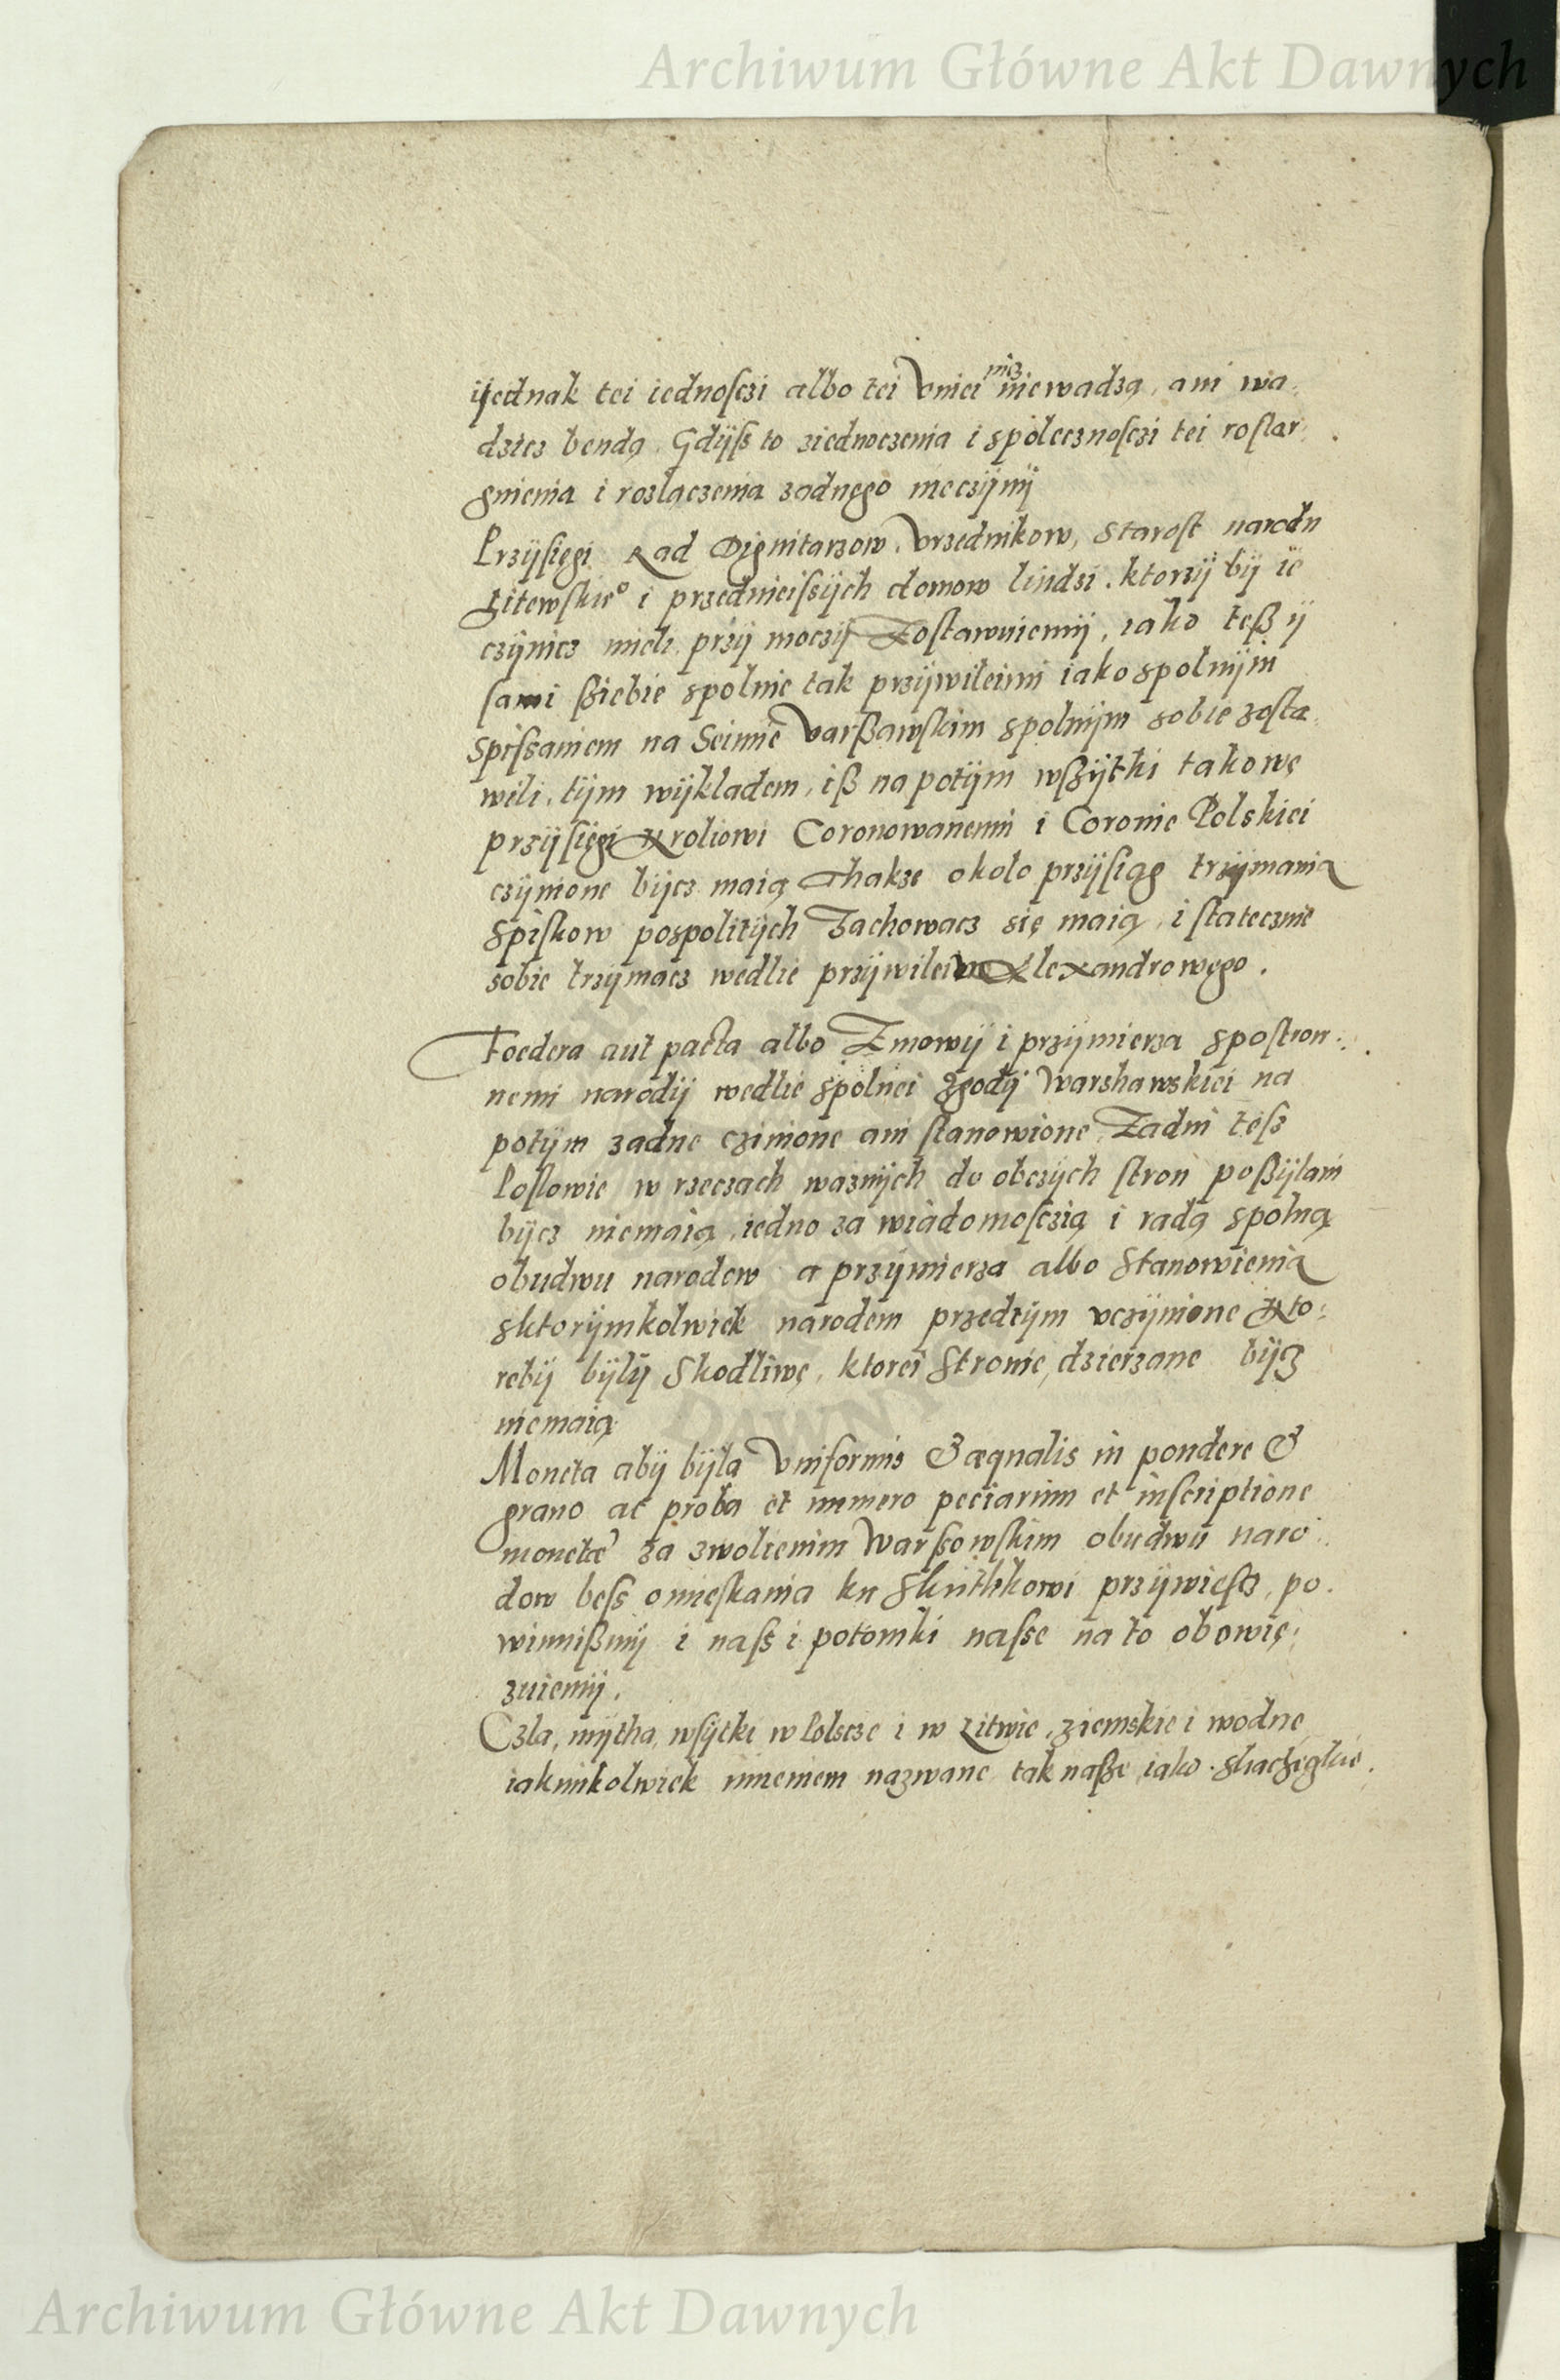 Archiwum Główne Akt Dawnych
ijednak tei iednosczi albo tei Vniei nicz niewadzą, ani wa:
dzicz bendą. Gdijss to ziednoczenia i spoleeznosczi tei rostar:
gnienia i rozlaczenia zadnęgo nieczijnij
Przijsięgi Rad Dignitarzow, Vrzednikow, starost narodu
Litewskie° i przednieissijch domow liudzi. ktorzij bij ie
czijnicz mieli przij moczij Zostawuiemij, iako teß ij
sami ßiebie spolnie tak przijwileimi iako spolnijm
spissaniem na Seimie Varßawskim spolnijm sobie zosta:
wili, tijm wijkladem, iß na potijm wßijtki takowę
przijsięgi Kroliowi Coronowanemu i Coronie Polskiei
czijnione bijcz maią Thakze okolo przijsiąg trzijmania
Spiskow pospolitijch Zachowacz się maią, i statecznie
sobie trzijmacz wedlie przijwileiu Alexandrowęgo.
Foedera aut pacta albo Zmowij i przijmierza spostron:
nemi narodij wedlie spolnei zgodij Warshawskiei na
potijm zadne czinione ani stanowione, Zadni tess
Poslowie w rzeczach waznijch do obczijch stron poßijlani
bijcz niemaią, iedno za wiadomosczią i radą spolną
obudwu narodow a przijmierza albo Stanowienia
sktorijmkolwiek narodem przedtijm vczijnione Kto:
rebij bijlij Skodliwę, ktorei Stronie, dzierzane bijcz
niemaią
Moneta abij bijla Vniformis & æqualis in pondere &
grano ac proba et numero peciarum et inscriptione
monetæ za zwolieniem Warssowskim obudwu naro:
dow bess omieskania ku Skuthkowi przijwiescz, po:
winnißmij i nass i potomki nasse na to obowię:
zuiemij.
Czla, mijtha, wsijtki w Polscze i w Litwie, ziemskie i wodnę
iakimkolwiek imieniem nazwane tak naßze, iako slacheczkie.
Archiwum Główne Akt Dawnych